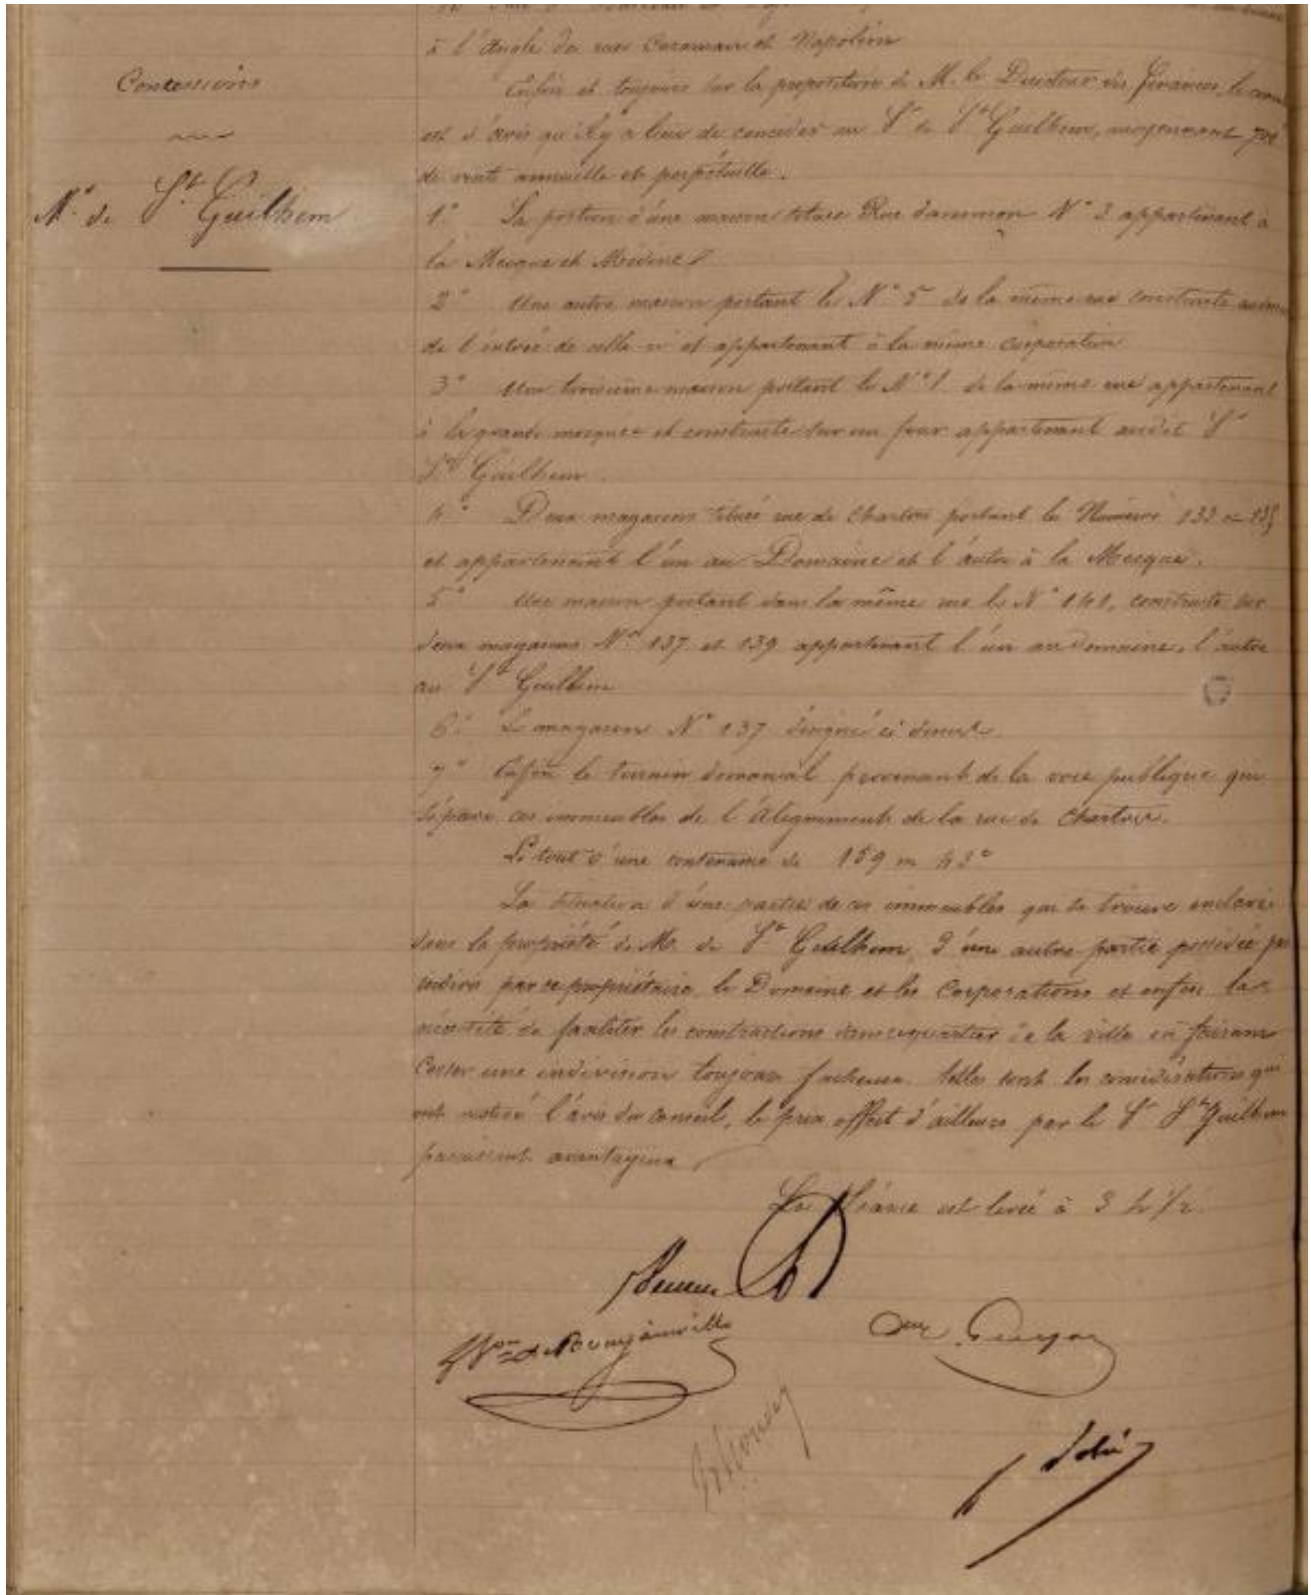 à l'Angle des rues Caraman et Napoléon
Concessions
Enfin et toujours sur la proposition de M. le Directeur des finances, le
est d'avis qu'il y a lieu de concéder au Sr de St Guilhem, moyennant
de rente annuelle et perpétuelle.
Mr. de St. Guilhem
1° La portion d'une maison située Rue Damrémon N° 3 appartenant à
la Mecque et Médine
2° Une autre maison portant le N° 5 de la même rue construite
de l'entrée de celle-ci et appartenant à la même corporation
3° Une troisième maison portant le N° 1 de la même rue appartenant
à la grande mosquée et construite sur un four appartenant audit Sr
St Guilhem.
4° Deux magasins situés rue de Chartres portant les Numéros 133 et 135
et appartenant l'un au Domaine et l'autre à la Mecque.
5° Une maison portant dans la même rue le N° 141, construite sur
deux magasins Nos 137 et 139 appartenant l'un au Domaine, l'autre
au St Guilhem
6° Le magasin N° 137 désigné ci dessus
7° Enfin le terrain domanial provenant de la voie publique qui
sépare ces immeubles de l'alignement de la rue de Chartres.
Le tout d'une contenance de 159 m 43c
La situation d'une partie de ces immeubles qui se trouve enclavée
dans la propriété de Mr. de St Guilhem, d'une autre partie possédée par
indivis par ce propriétaire, le Domaine et les Corporations et enfin la
nécessité de faciliter les constructions dans ce quartier de la ville en faisant
Cesser une indivision toujours facheuse. telles sont les considérations qui
ont motivé l'avis du conseil, le prix offert d'ailleurs par le Sr St Guilhem
paraissant avantageux
La Séance est levée à 3 h 1/2.
de Bougainville